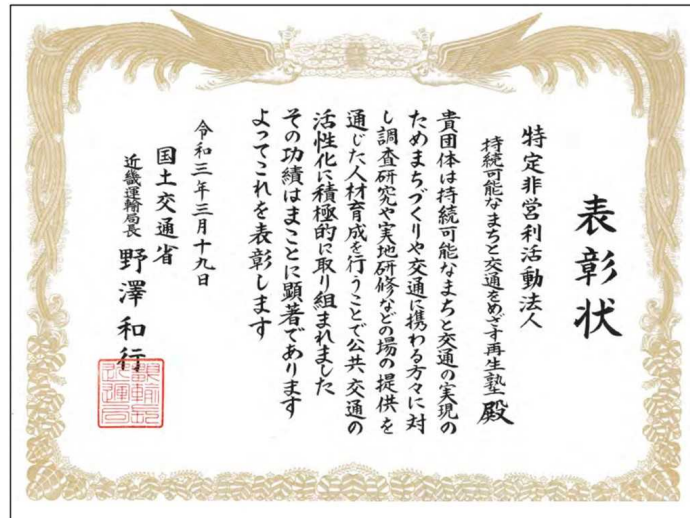 表彰状
特定非営利活動法人
持続可能なまちと交通をめざす再生塾 殿
貴団体は持続可能なまちと交通の実現の
ためまちづくりや交通に携わる方々に対
し調査研究や実地研修などの場の提供を
通じた人材育成を行うことで公共交通の
活性化に積極的に取り組まれました
その功績はまことに顕著であります
よってこれを表彰します
令和三年三月十九日
国土交通省
近畿運輸局長 野澤和行